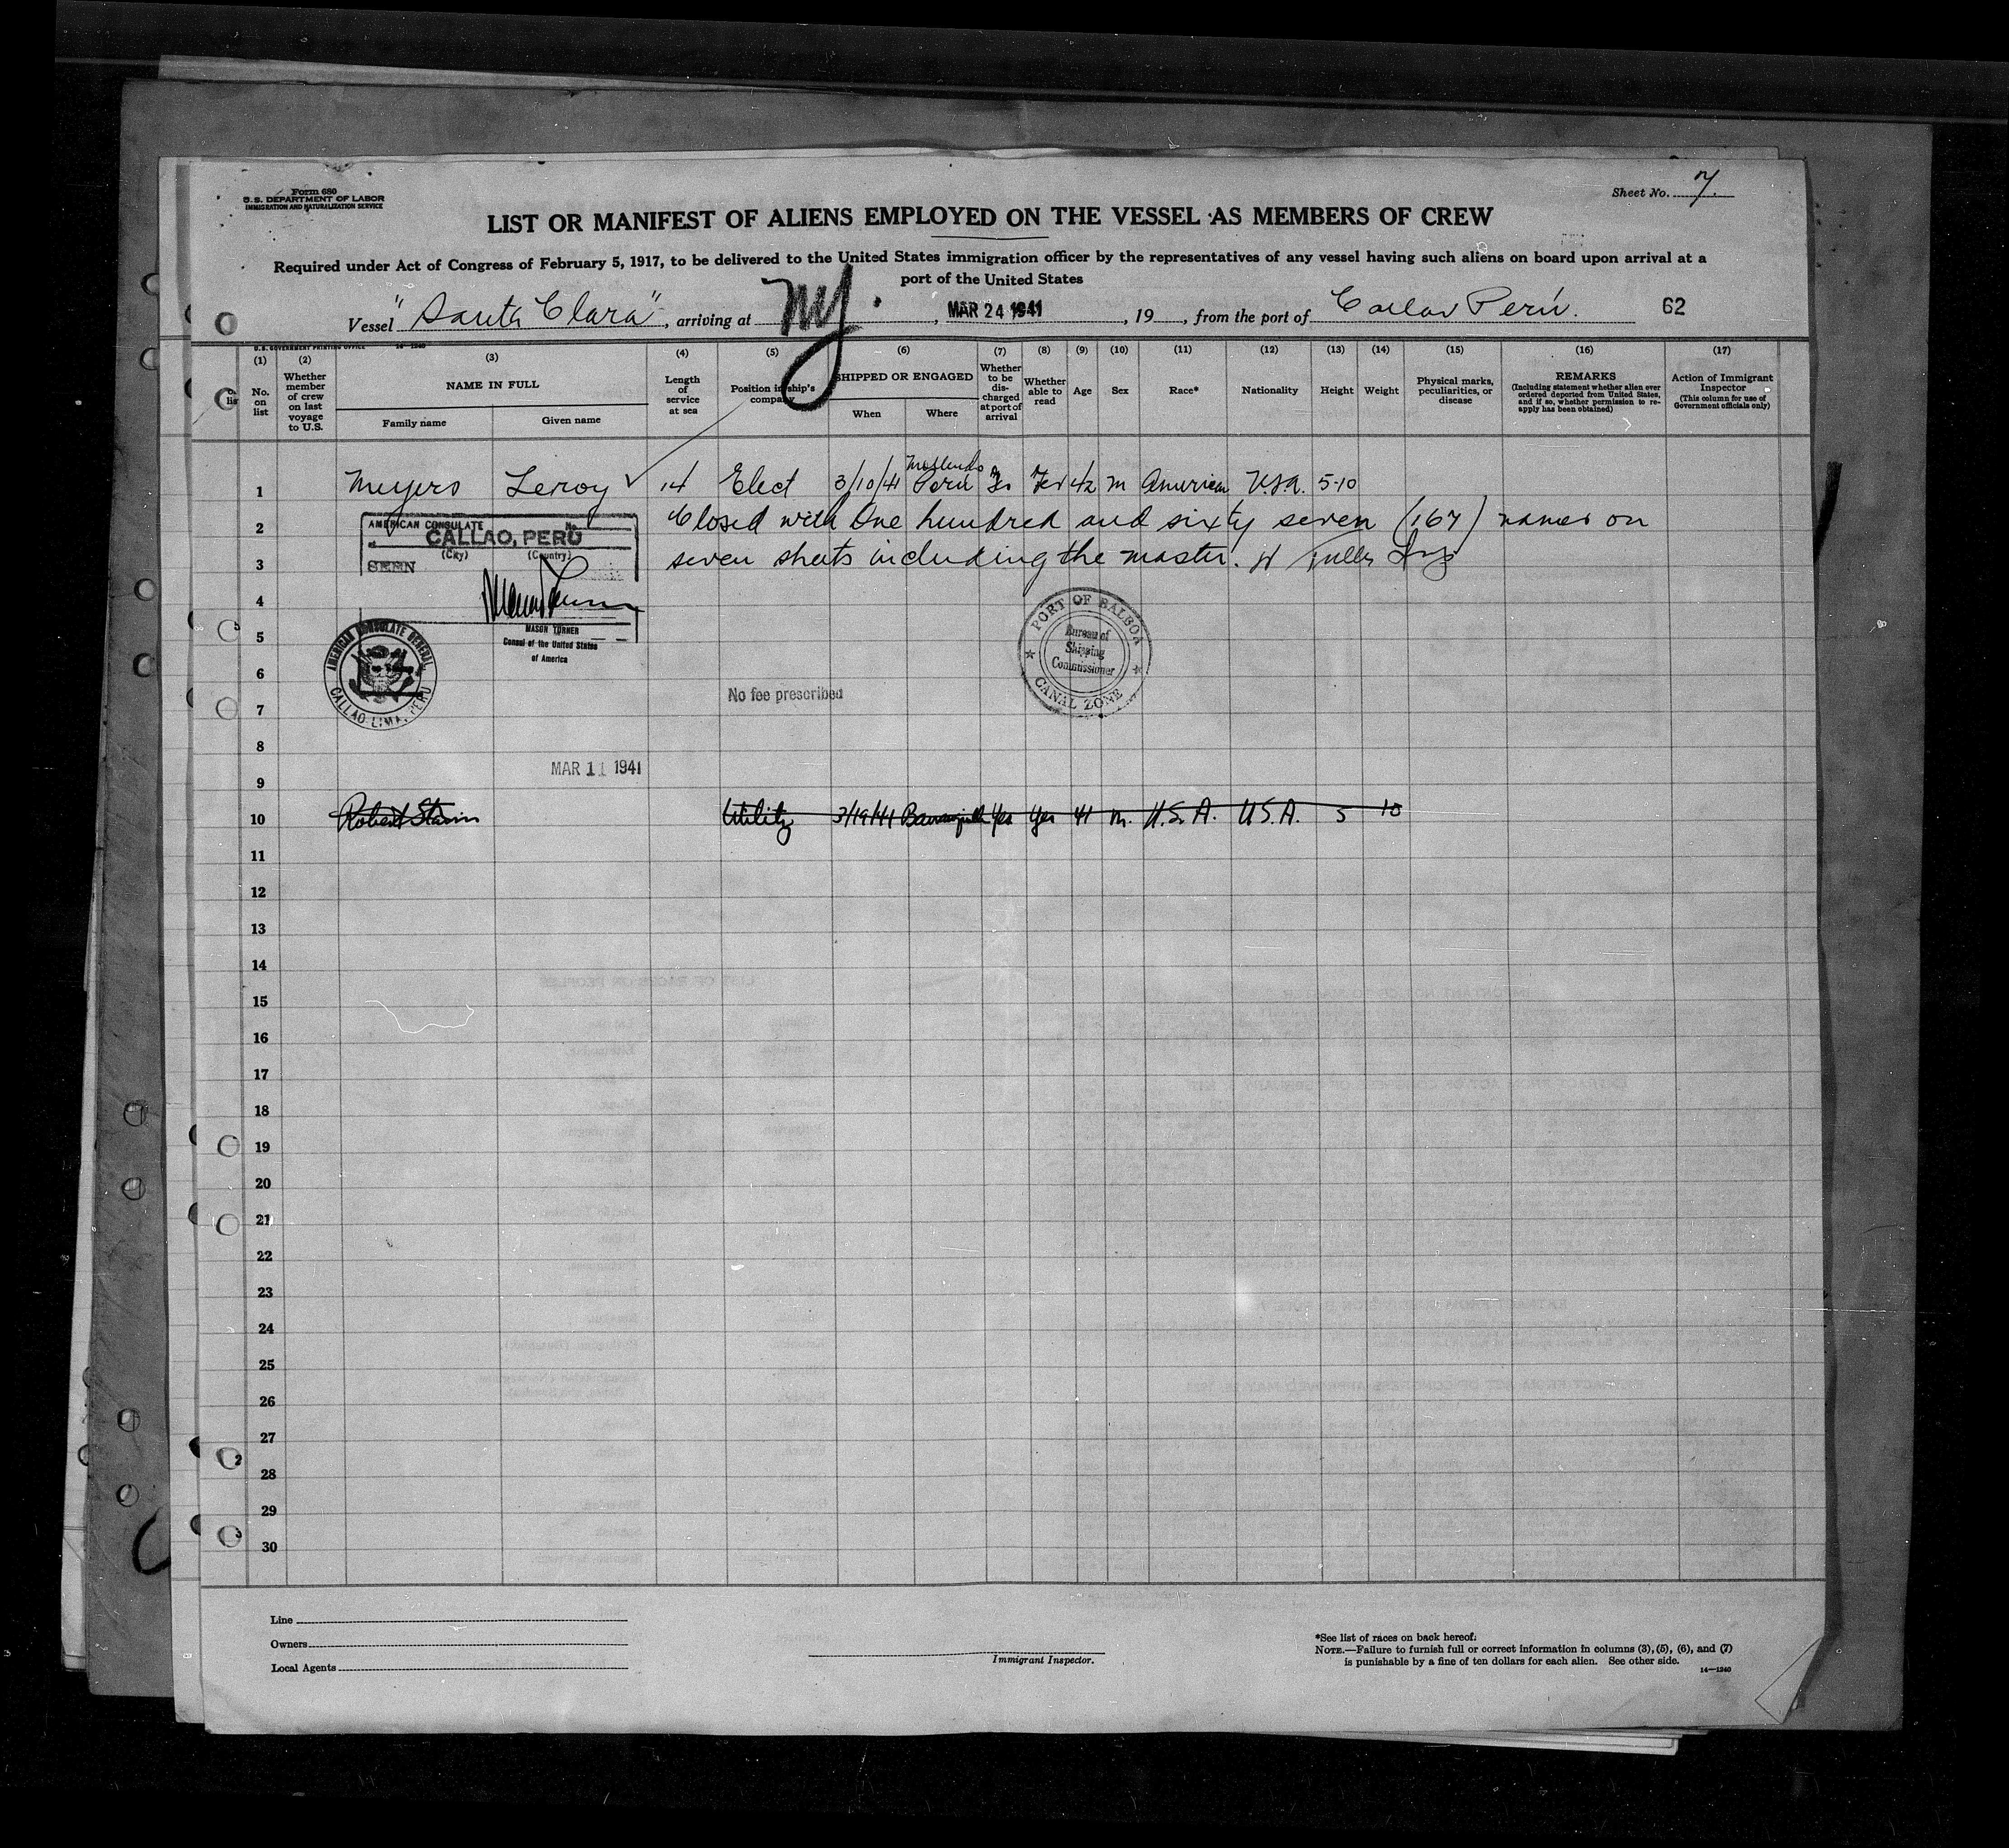 Form 680
U.S. DEPARTMENT OF LABOR
IMMIGRATION AND NATURALIZATION SERVICE
Sheet No. 7.
LIST OR MANIFEST OF ALIENS EMPLOYED ON THE VESSEL AS MEMBERS OF CREW
Required under Act of Congress of February 5, 1917, to be delivered to the United States immigration officer by the representatives of any vessel having such aliens on board upon arrival at a
port of the United States
Vessel "Santa Clara", arriving at NY., MAR 24 1941, 19, from the port of Callao Perú. 62
U.S. GOVERNMENT PRINTING OFFICE 14-1240
(1) (2) (3) (4) (5) (6) (7) (8) (9) (10) (11) (12) (13) (14) (15) (16) (17)
No. on list
Whether member of crew on last voyage to U.S.
NAME IN FULL
Family name
Given name
Length of service at sea
Position in ship's company
SHIPPED OR ENGAGED
When
Where
Whether to be discharged at port of arrival
Whether able to read
Age
Sex
Race*
Nationality
Height
Weight
Physical marks, peculiarities, or disease
REMARKS
(Including statement whether alien ever ordered deported from United States, and if so, whether permission to reapply has been obtained)
Action of Immigrant Inspector
(This column for use of Government officials only)
1 Meyers Leroy 14 Elect 3/10/41 Mollendo Peru Yes Yes 42 m American U.S.A. 5-10
2 Closed with One hundred and sixty seven (167) names on
3 seven sheets including the master.
AMERICAN CONSULATE
No.
at CALLAO, PERU
(City) (Country)
SEEN
4
5
MASON TURNER
Consul of the United States
of America
AMERICAN CONSULATE GENERAL
CALLAO-LIMA, PERU
PORT OF BALBOA
Bureau of
Shipping
Commissioner
CANAL ZONE
6
No fee prescribed
7
8
MAR 11 1941
9
10 Robert Utility 3/19/41 Yes Yes 41 m. U.S.A. U.S.A. 5 10
11
12
13
14
15
16
17
18
19
20
21
22
23
24
25
26
27
28
29
30
Line
Owners
Local Agents
Immigrant Inspector.
*See list of races on back hereof.
NOTE.—Failure to furnish full or correct information in columns (3), (5), (6), and (7)
is punishable by a fine of ten dollars for each alien. See other side.
14—1240